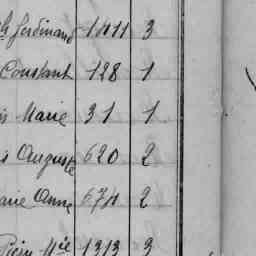 Ferdinand 1411 3
Constant 128 1
Marie 31 1
Auguste 620 2
Marie Anne 674 2
1313 3